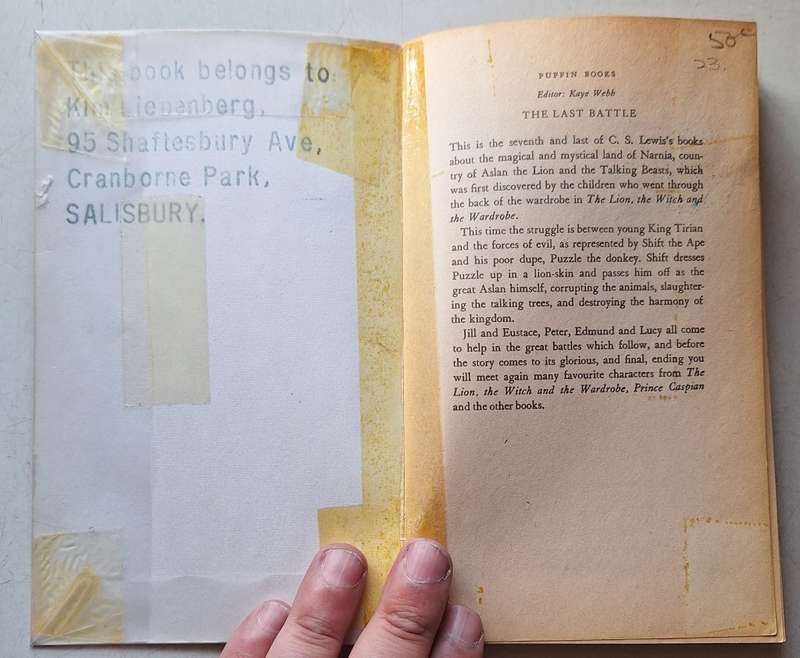 This book belongs to:
Kim Liebenberg,
95 Shaftesbury Ave,
Cranborne Park,
SALISBURY.
50c
23.
PUFFIN BOOKS
Editor: Kaye Webb
THE LAST BATTLE
This is the seventh and last of C. S. Lewis's books
about the magical and mystical land of Narnia, coun-
try of Aslan the Lion and the Talking Beasts, which
was first discovered by the children who went through
the back of the wardrobe in The Lion, the Witch and
the Wardrobe.
This time the struggle is between young King Tirian
and the forces of evil, as represented by Shift the Ape
and his poor dupe, Puzzle the donkey. Shift dresses
Puzzle up in a lion-skin and passes him off as the
great Aslan himself, corrupting the animals, slaughter-
ing the talking trees, and destroying the harmony of
the kingdom.
Jill and Eustace, Peter, Edmund and Lucy all come
to help in the great battles which follow, and before
the story comes to its glorious, and final, ending you
will meet again many favourite characters from The
Lion, the Witch and the Wardrobe, Prince Caspian
and the other books.